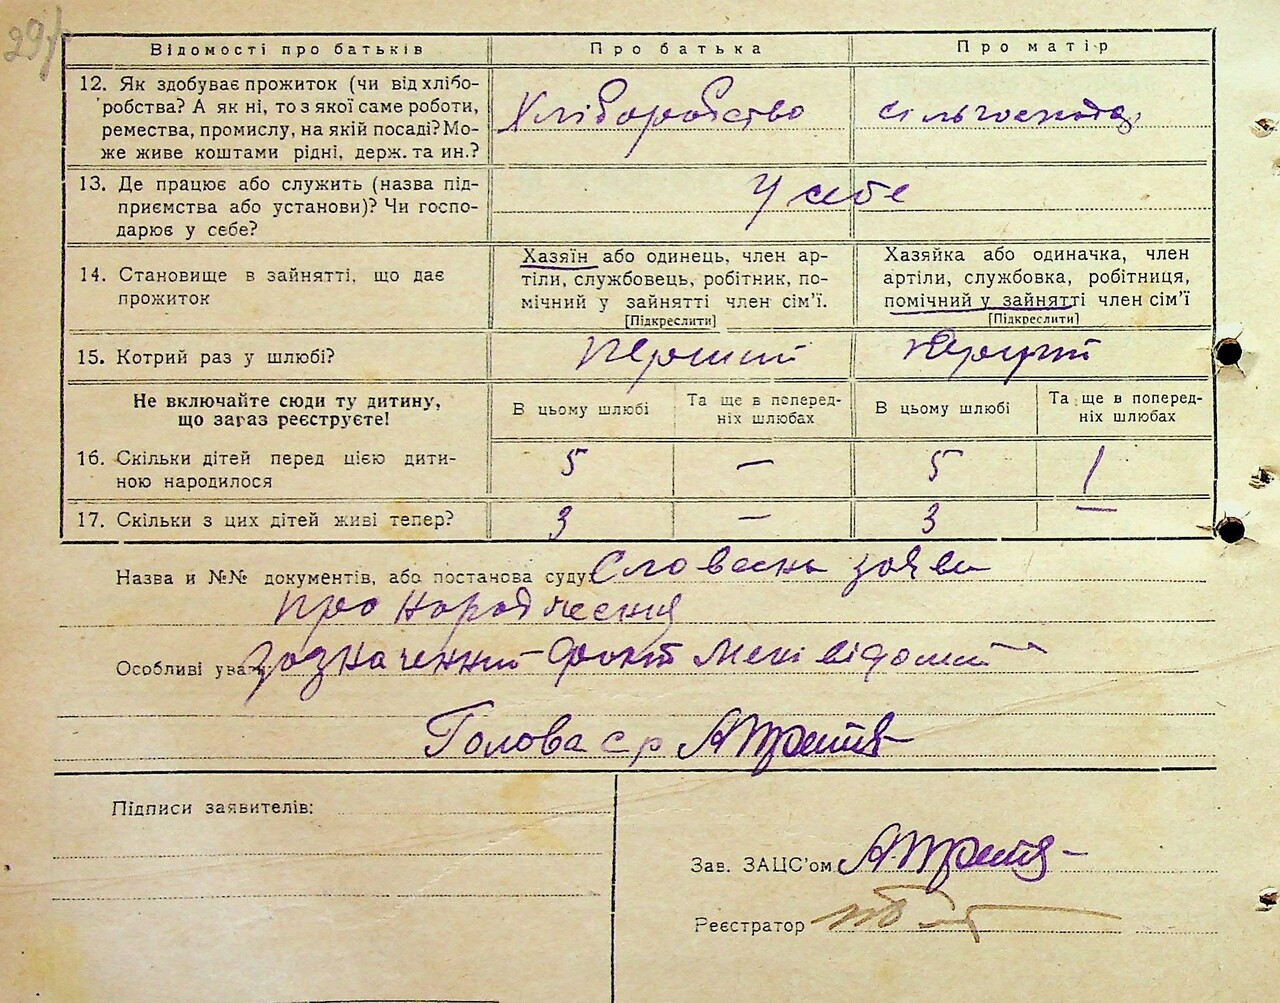 29/
Відомості про батьків Про батька Про матір
12. Як здобуває прожиток (чи від хлібо-
робства? А як ні, то з якої саме роботи,
ремества, промислу, на якій посаді? Мо-
же живе коштами рідні, держ. та ин.?
Хліборобство сільгоспода,
13. Де працює або служить (назва під-
приємства або установи)? Чи госпо-
дарює у себе?
У себе
14. Становище в зайнятті, що дає
прожиток
Хазяїн або одинець, член ар-
тіли, службовець, робітник, по-
мічний у зайнятті член сім'ї.
[Підкреслити]
Хазяйка або одиначка, член
артіли, службовка, робітниця,
помічний у зайнятті член сім'ї
[Підкреслити]
15. Котрий раз у шлюбі? перший перший
Не включайте сюди ту дитину,
що зараз реєструєте!
В цьому шлюбі
Та ще в поперед-
ніх шлюбах
В цьому шлюбі
Та ще в поперед-
ніх шлюбах
16. Скільки дітей перед цією дити-
ною народилося
5 — 5 1
17. Скільки з цих дітей живі тепер? 3 — 3 —
Назва и №№ документів, або постанова суду: Словесна заява
про народження
Особливі уваги: зазначений факт мені відомий
Голова с р
Підписи заявителів:
Зав. ЗАЦС'ом
Реєстратор